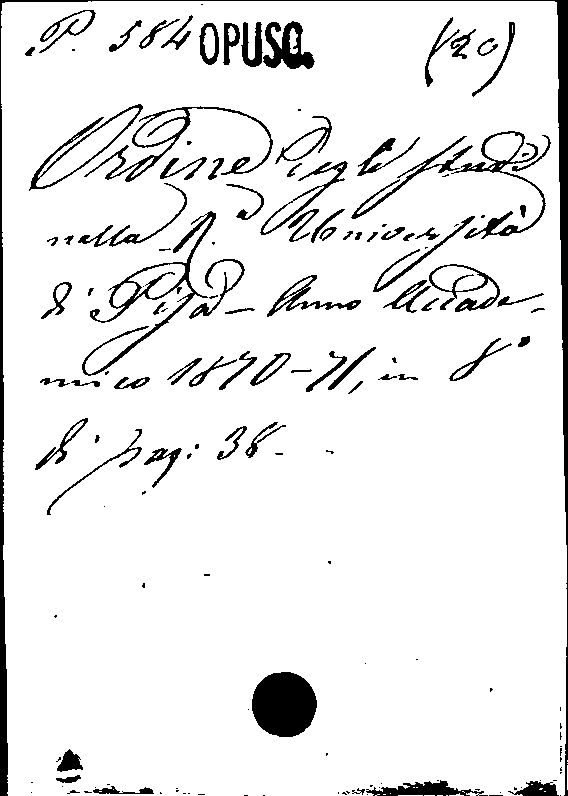 P. 584 OPUSC. (20)
Ordine degli studi
nella R.ª Università
di Pisa - Anno Accade-
mico 1870-71, in 8°
di pag: 38-